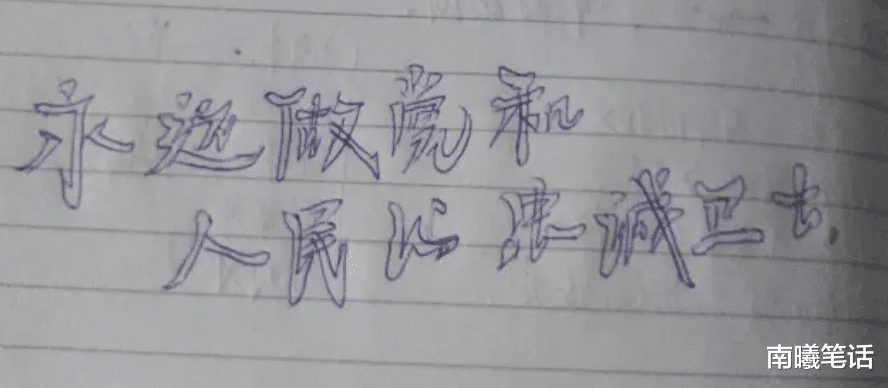 永远做党和
人民的忠诚卫士.
南曦笔话